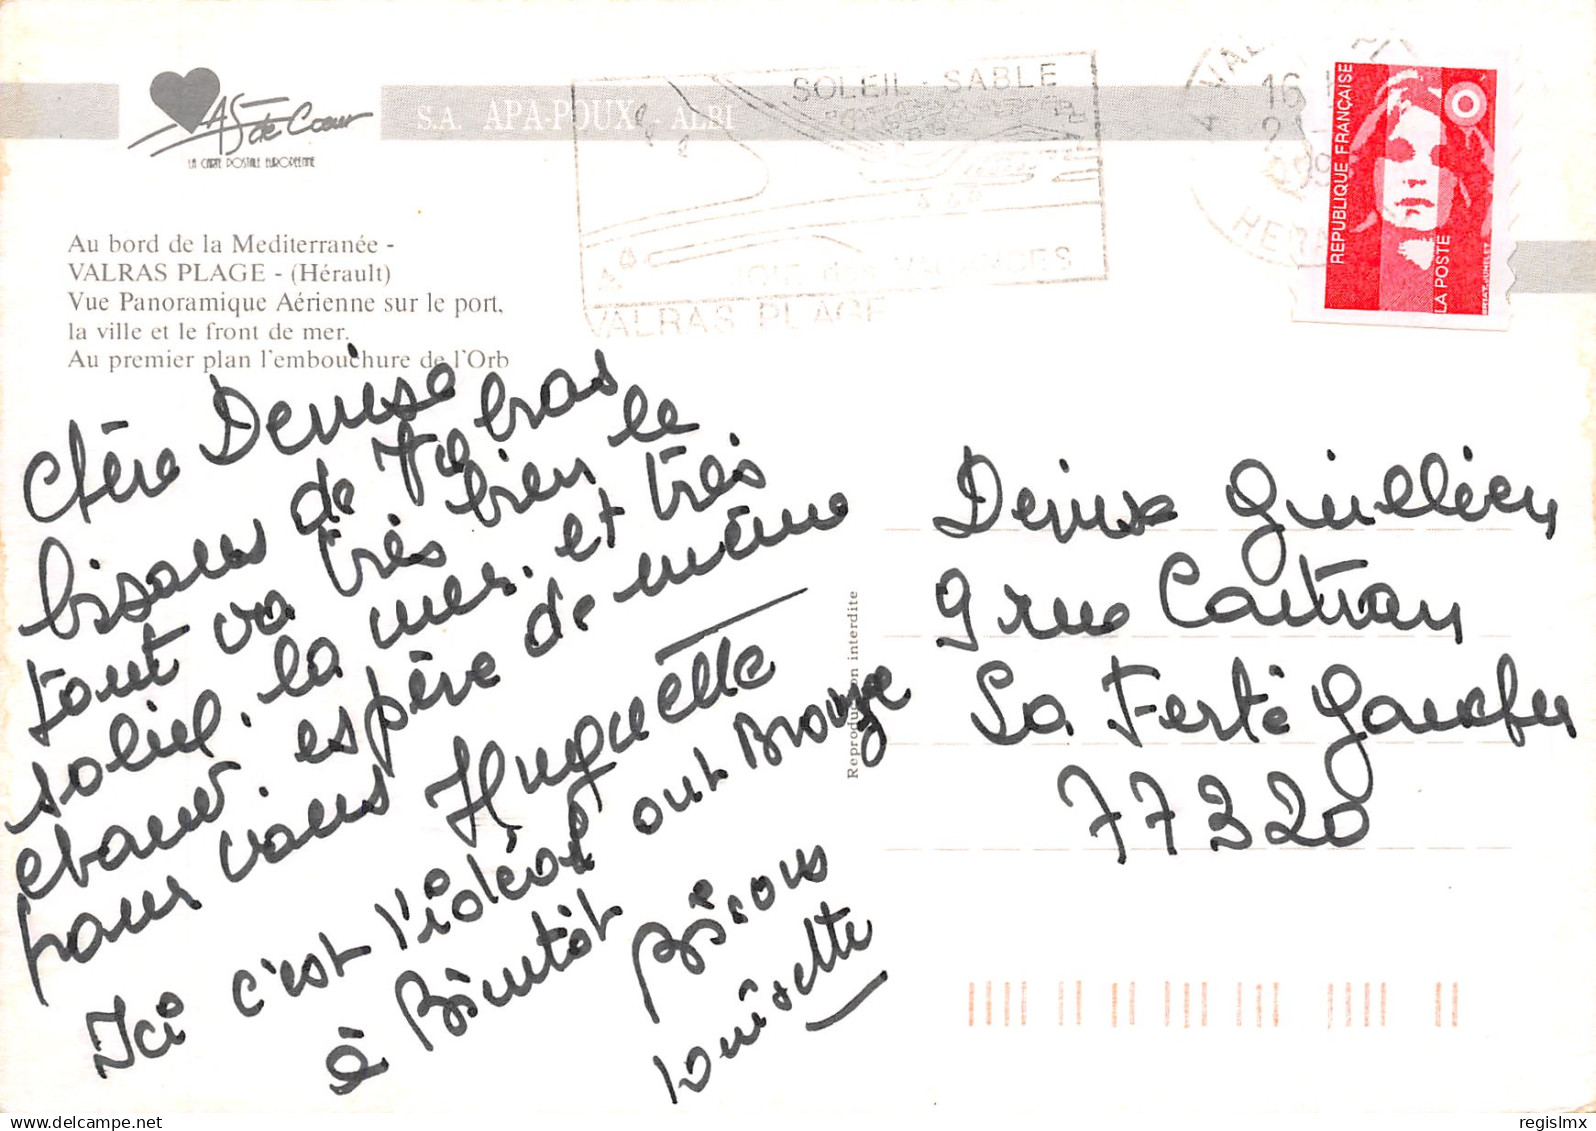 AS de Cœur
LA CARTE POSTALE EUROPÉENNE
S.A. APA-POUX - ALBI
Au bord de la Mediterranée -
VALRAS PLAGE - (Hérault)
Vue Panoramique Aérienne sur le port,
la ville et le front de mer.
Au premier plan l'embouchure de l'Orb
SOLEIL - SABLE
VALRAS PLAGE
16
RÉPUBLIQUE FRANÇAISE
LA POSTE
BRIAT. JUMELET
Chère Denise
bisous de Valras
tout va très bien le
soleil, la mer, et très
chaud. espère de même
pour vous Huguette
Ici c'est l'idéal out Bronze
à Bientôt Bisous
Louisette
Reproduction interdite
Denise Guillien
9 rue
La Ferté Gaucher
77320
regislmx